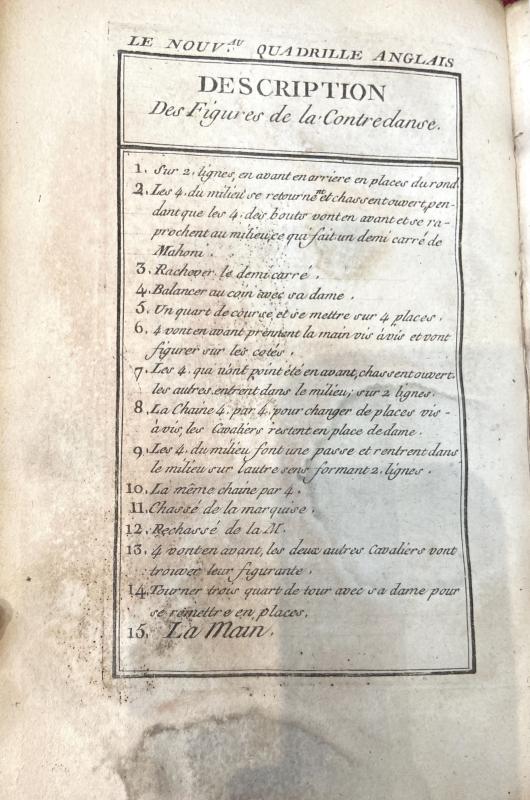 LE NOUV.AU QUADRILLE ANGLAIS
DESCRIPTION
Des Figures de la Contredanse.
1. Sur 2. lignes, en avant en arriere en places du rond.
2. Les 4. du milieu se retournent et chassent ouvert, pen-
dant que les 4. des bouts vont en avant et se ra-
prochent au milieu, ce qui fait un demi carré de
Mahoni.
3. Rachever le demi carré.
4. Balancer au coin avec sa dame.
5. Un quart de course, et se mettre sur 4 places.
6. 4 vont en avant prènnent la main vis àvis et vont
figurer sur les cotés.
7. Les 4. qui n'ont point été en avant, chassent ouvert.
les autres entrent dans le milieu; sur 2 lignes.
8. La Chaine 4. par 4. pour changer de places vis-
àvis, les Cavaliers restent en place de dame.
9. Les 4. du milieu font une passe et rentrent dans
le milieu sur l'autre sens formant 2. lignes.
10. La même chaine par 4.
11. Chassé de la marquise.
12. Rechassé de la M.
13. 4 vont en avant, les deux autres Cavaliers vont
trouver leur figurante.
14. Tourner trois quart de tour avec sa dame pour
se remettre en places.
15. La Main.